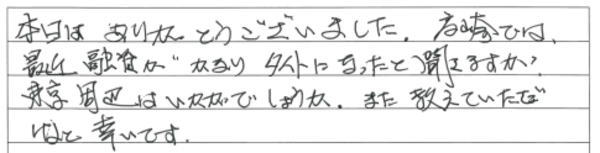 本日は ありがとうございました。高崎では、
最近 融資が かなり タイトになったと 聞きますが、
東京周辺はいかがでしょうか。また 教えていただけ
ばと 幸いです。